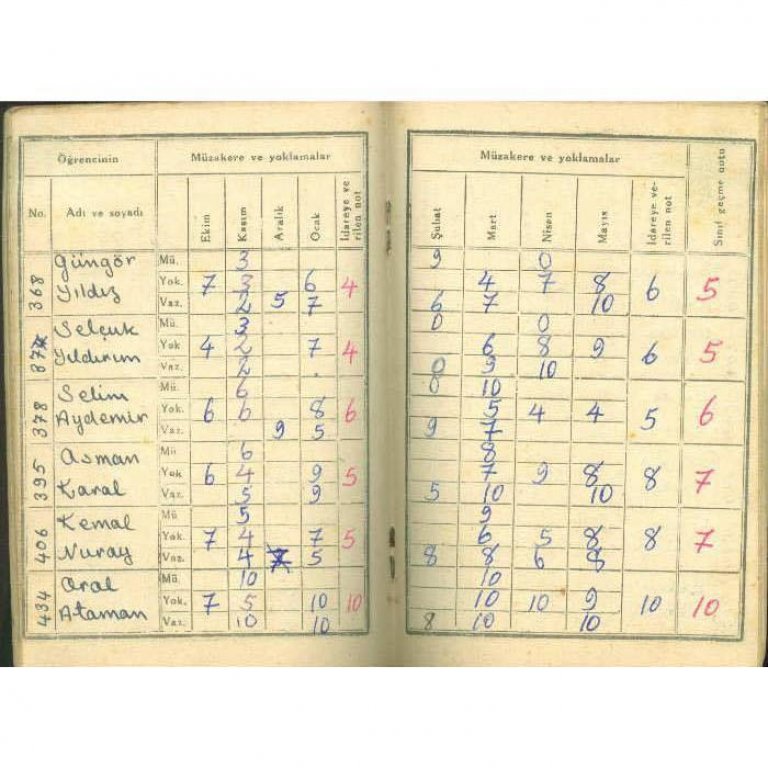 Öğrencinin Müzakere ve yoklamalar
No. Adı ve soyadı Ekim Kasım Aralık Ocak İdareye verilen not
368 Güngör Yıldız
Mü. 3
Yok. 7 3 6 4
Vaz. 2 5 7
Selçuk Yıldırım
Mü. 3
Yok 4 2 7 4
Vaz. 2
378 Selim Aydemir
Mü. 6
Yok. 6 6 8 6
Vaz. 9 5
395 Asman Karal
Mü 6
Yok 6 4 9 5
Vaz. 5 9
406 Kemal Nuray
Mü 5
Yok. 7 4 7 5
Vaz. 4 5
434 Oral Ataman
Mü. 10
Yok. 7 5 10 10
Vaz. 10 10
Müzakere ve yoklamalar
Şubat Mart Nisan Mayıs İdareye verilen not Sınıf geçme notu
9 0
4 7 8 6 5
6 7 10
0 0
6 8 9 6 5
0 9 10
0 10
5 4 4 5 6
9 7
8
7 9 8 8 7
5 10 10
9
6 5 8 8 7
8 8 6 8
10
10 10 9 10 10
8 10 10